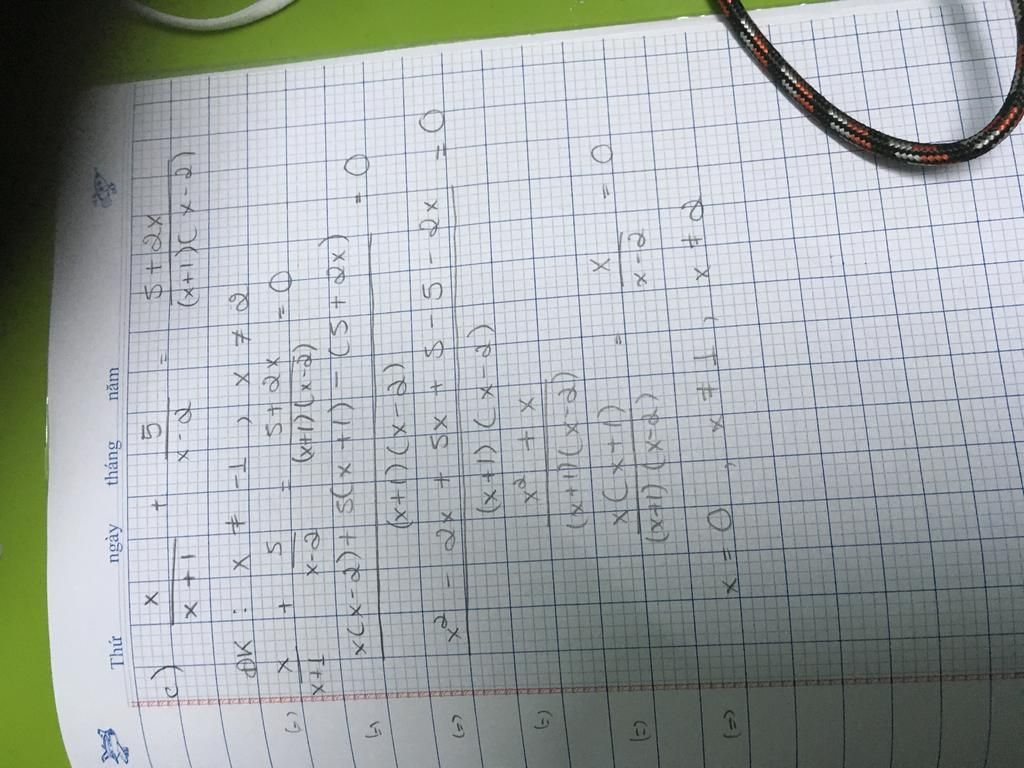 Thứ ngày tháng năm
c) x/(x+1) + 5/(x-2) = (5+2x)/((x+1)(x-2))
ĐK: x ≠ -1, x ≠ 2
(=) x/(x+1) + 5/(x-2) = (5+2x)/((x+1)(x-2)) = 0
(=) (x(x-2)+5(x+1)-(5+2x))/((x+1)(x-2)) = 0
(=) (x² - 2x + 5x + 5 - 5 - 2x)/((x+1)(x-2)) = 0
(=) (x² + x)/((x+1)(x-2))
(=) (x(x+1))/((x+1)(x-2)) = x/(x-2) = 0
(=) x = 0, x ≠ 1, x ≠ 2